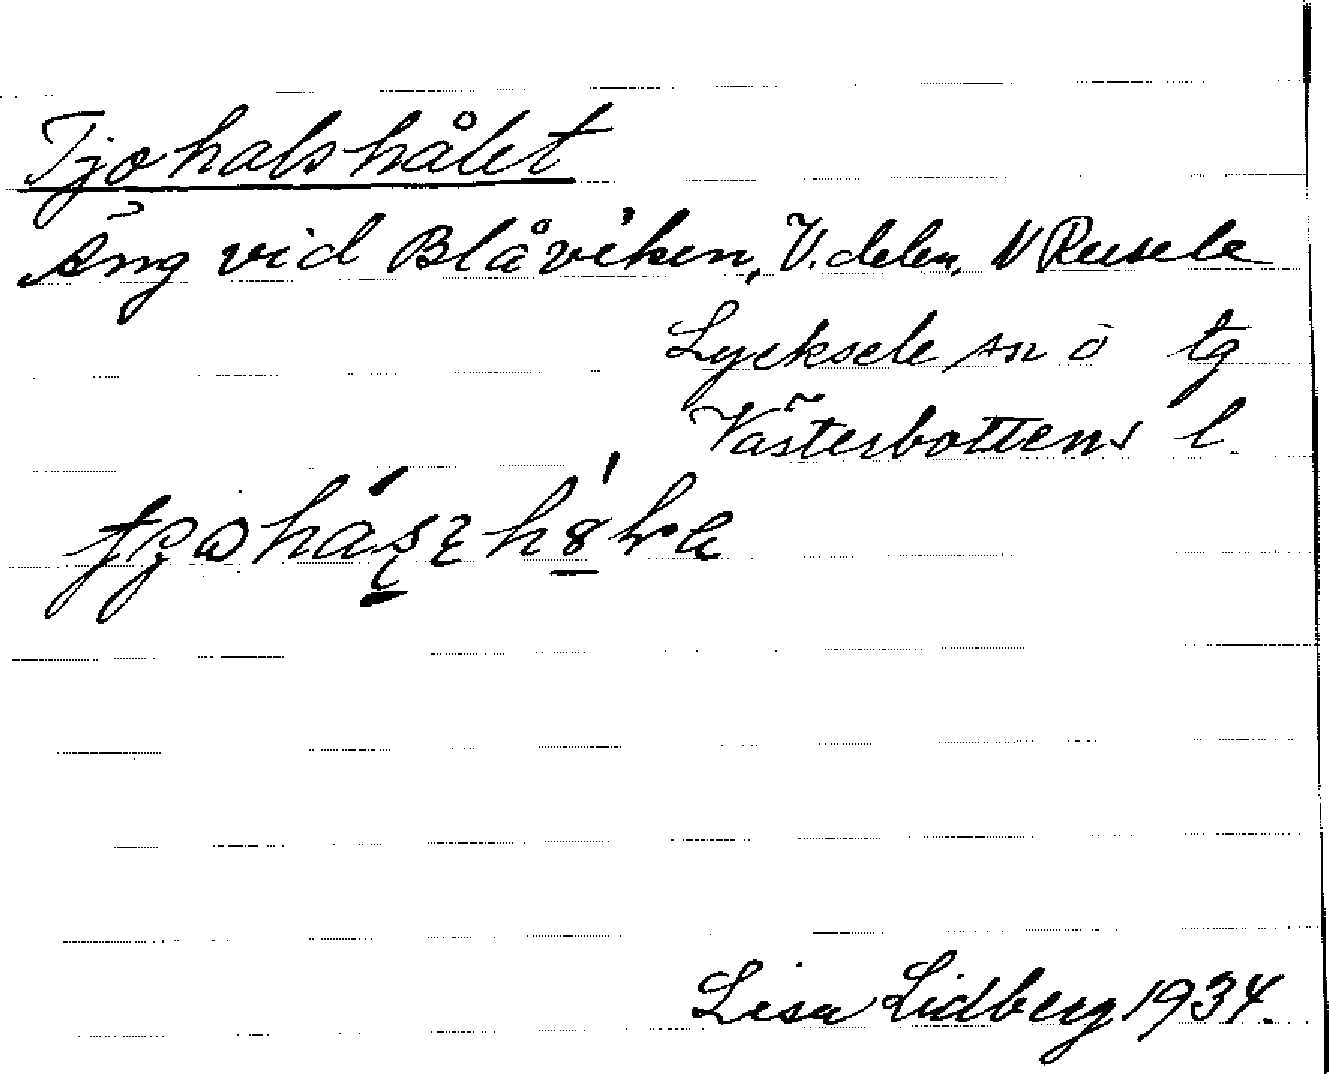 Tjohalshålet
Äng vid Blåviken, V. delen, N Rusele
Lycksele sn o tg
Västerbottens l.
Lisa Lidberg 1934.